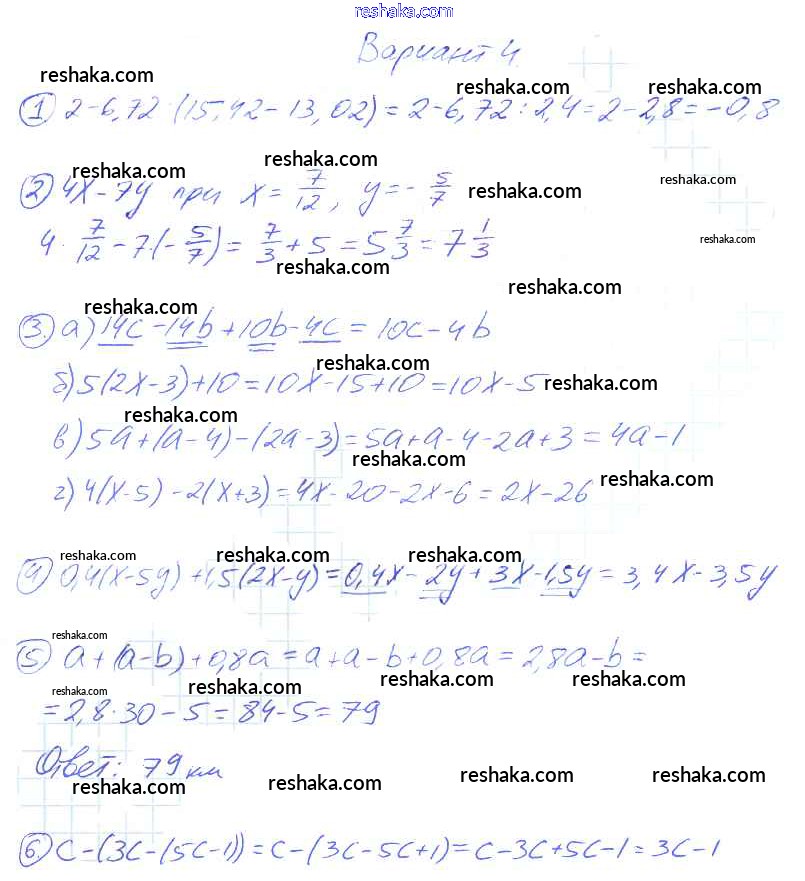 reshaka.com
Вариант 4.
reshaka.com
reshaka.com reshaka.com
1 2-6,72:(15,42-13,02)=2-6,72:2,4=2-2,8=-0,8
reshaka.com reshaka.com reshaka.com
2 4x-7y при x=7/12, y=-5/7
reshaka.com reshaka.com
4·7/12-7·(-5/7)=7/3+5=5 7/3=7 1/3
reshaka.com
reshaka.com reshaka.com
3. а) 14c-14b+10b-4c=10c-4b
reshaka.com
б) 5(2x-3)+10=10x-15+10=10x-5
reshaka.com
reshaka.com
в) 5a+(a-4)-(2a-3)=5a+a-4-2a+3=4a-1
reshaka.com
reshaka.com
г) 4(x-5)-2(x+3)=4x-20-2x-6=2x-26
reshaka.com reshaka.com reshaka.com
4) 0,4(x-5y)+1,5(2x-y)=0,4x-2y+3x-1,5y=3,4x-3,5y
reshaka.com
5) a+(a-b)+0,8a=a+a-b+0,8a=2,8a-b=
reshaka.com reshaka.com reshaka.com reshaka.com
=2,8·30-5=84-5=79
Ответ: 79 км
reshaka.com reshaka.com reshaka.com reshaka.com
6. c-(3c-(5c-1))=c-(3c-5c+1)=c-3c+5c-1=3c-1